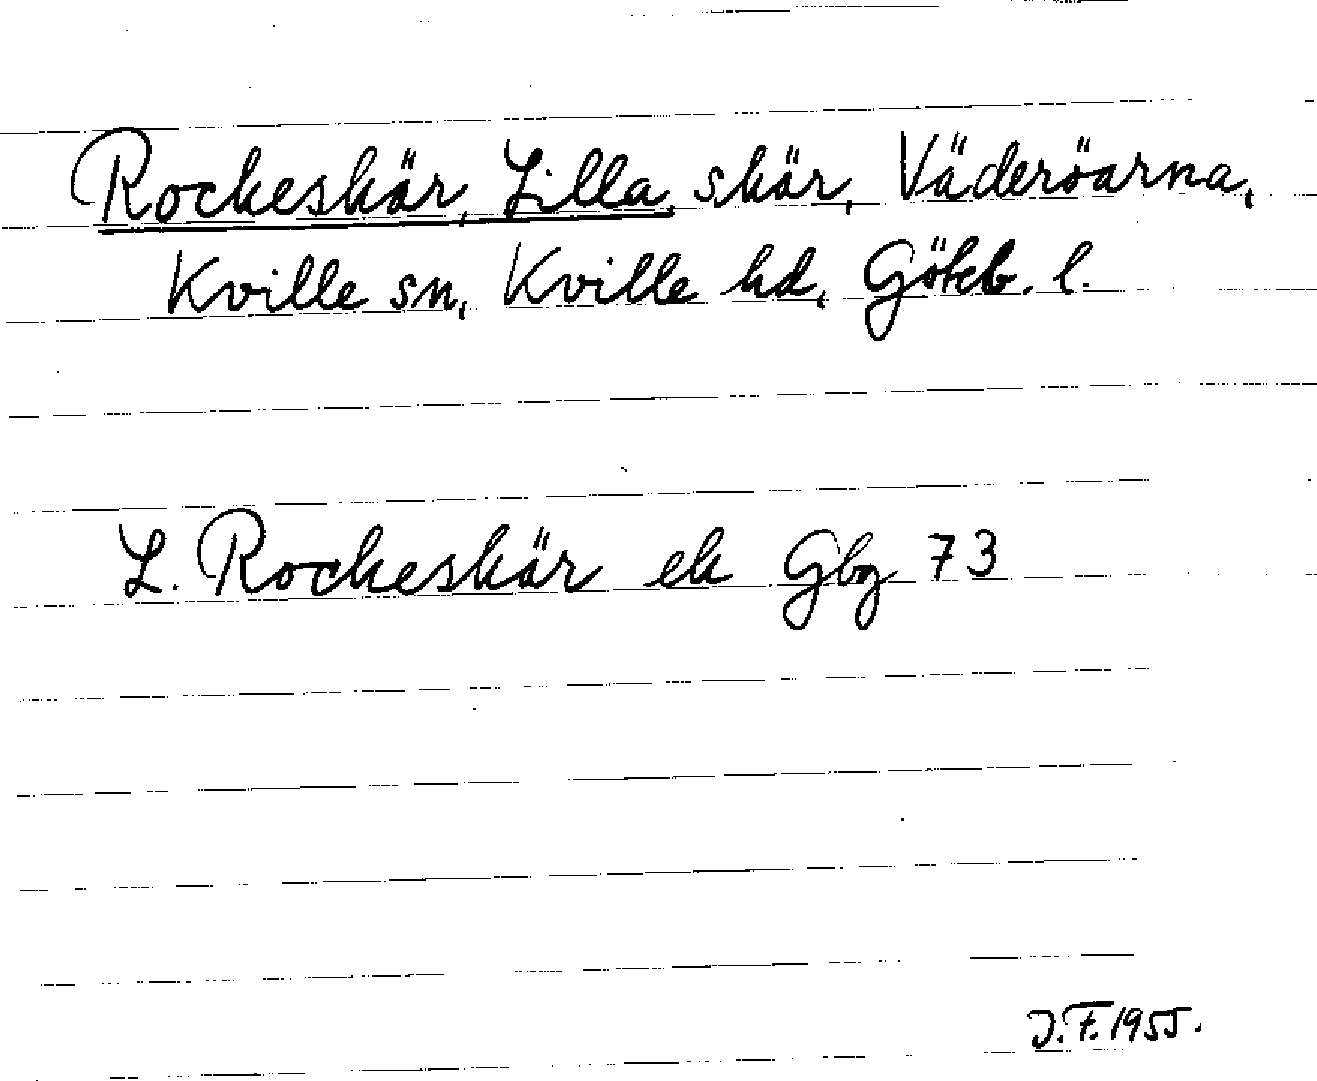 Rockeskär, Lilla, skär, Väderöarna,
Kville sn, Kville hd, Göteb. l.
L. Rockeskär ek Gbg 73
J.F. 1955.